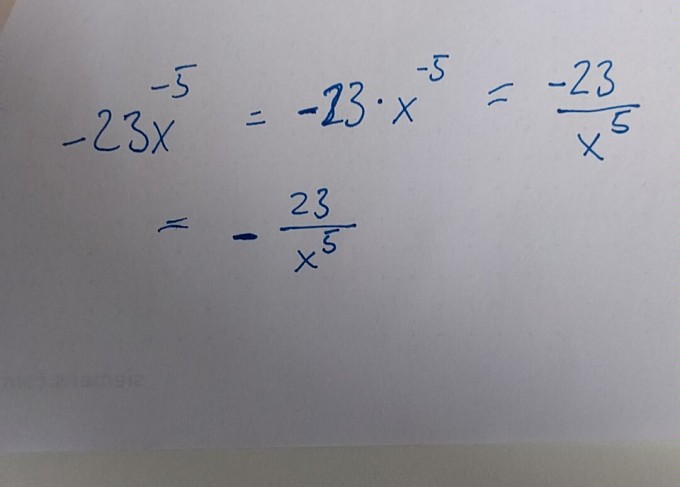 -23x⁻⁵ = -23·x⁻⁵ = -23/x⁵
= - 23/x⁵